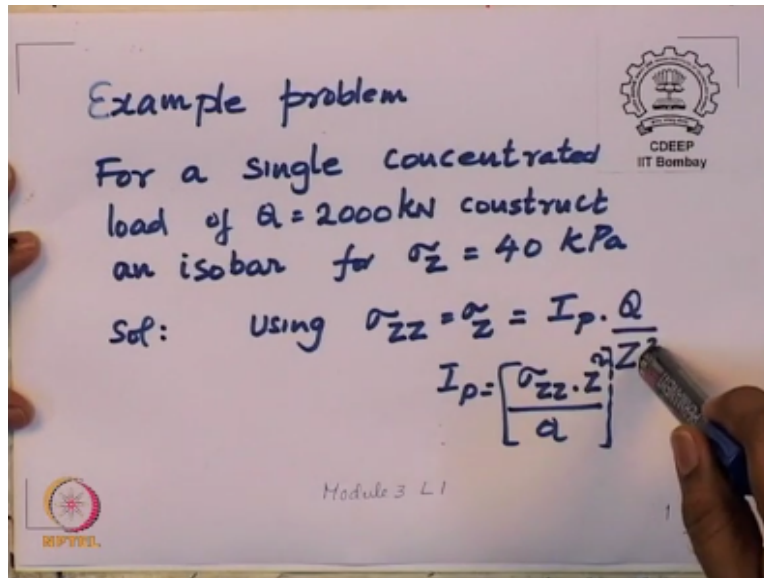 Example problem
CDEEP
IIT Bombay
For a single concentrated
load of Q = 2000 kN construct
an isobar for σz = 40 kPa
Sol: Using σzz = σz = Ip. Q/Z²
Ip = [σzz.z²/Q]
Module 3 L1
1
NPTEL